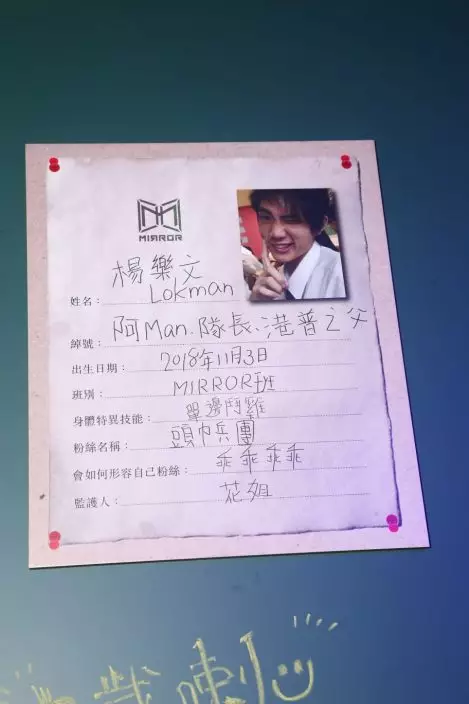 MIRROR
姓名：楊樂文 Lokman
綽號：阿Man、隊長、港普之父
出生日期：2018年11月3日
班別：MIRROR班
身體特異技能：單邊鬥雞
粉絲名稱：頭巾兵團
會如何形容自己粉絲：乖乖乖乖
監護人：花姐